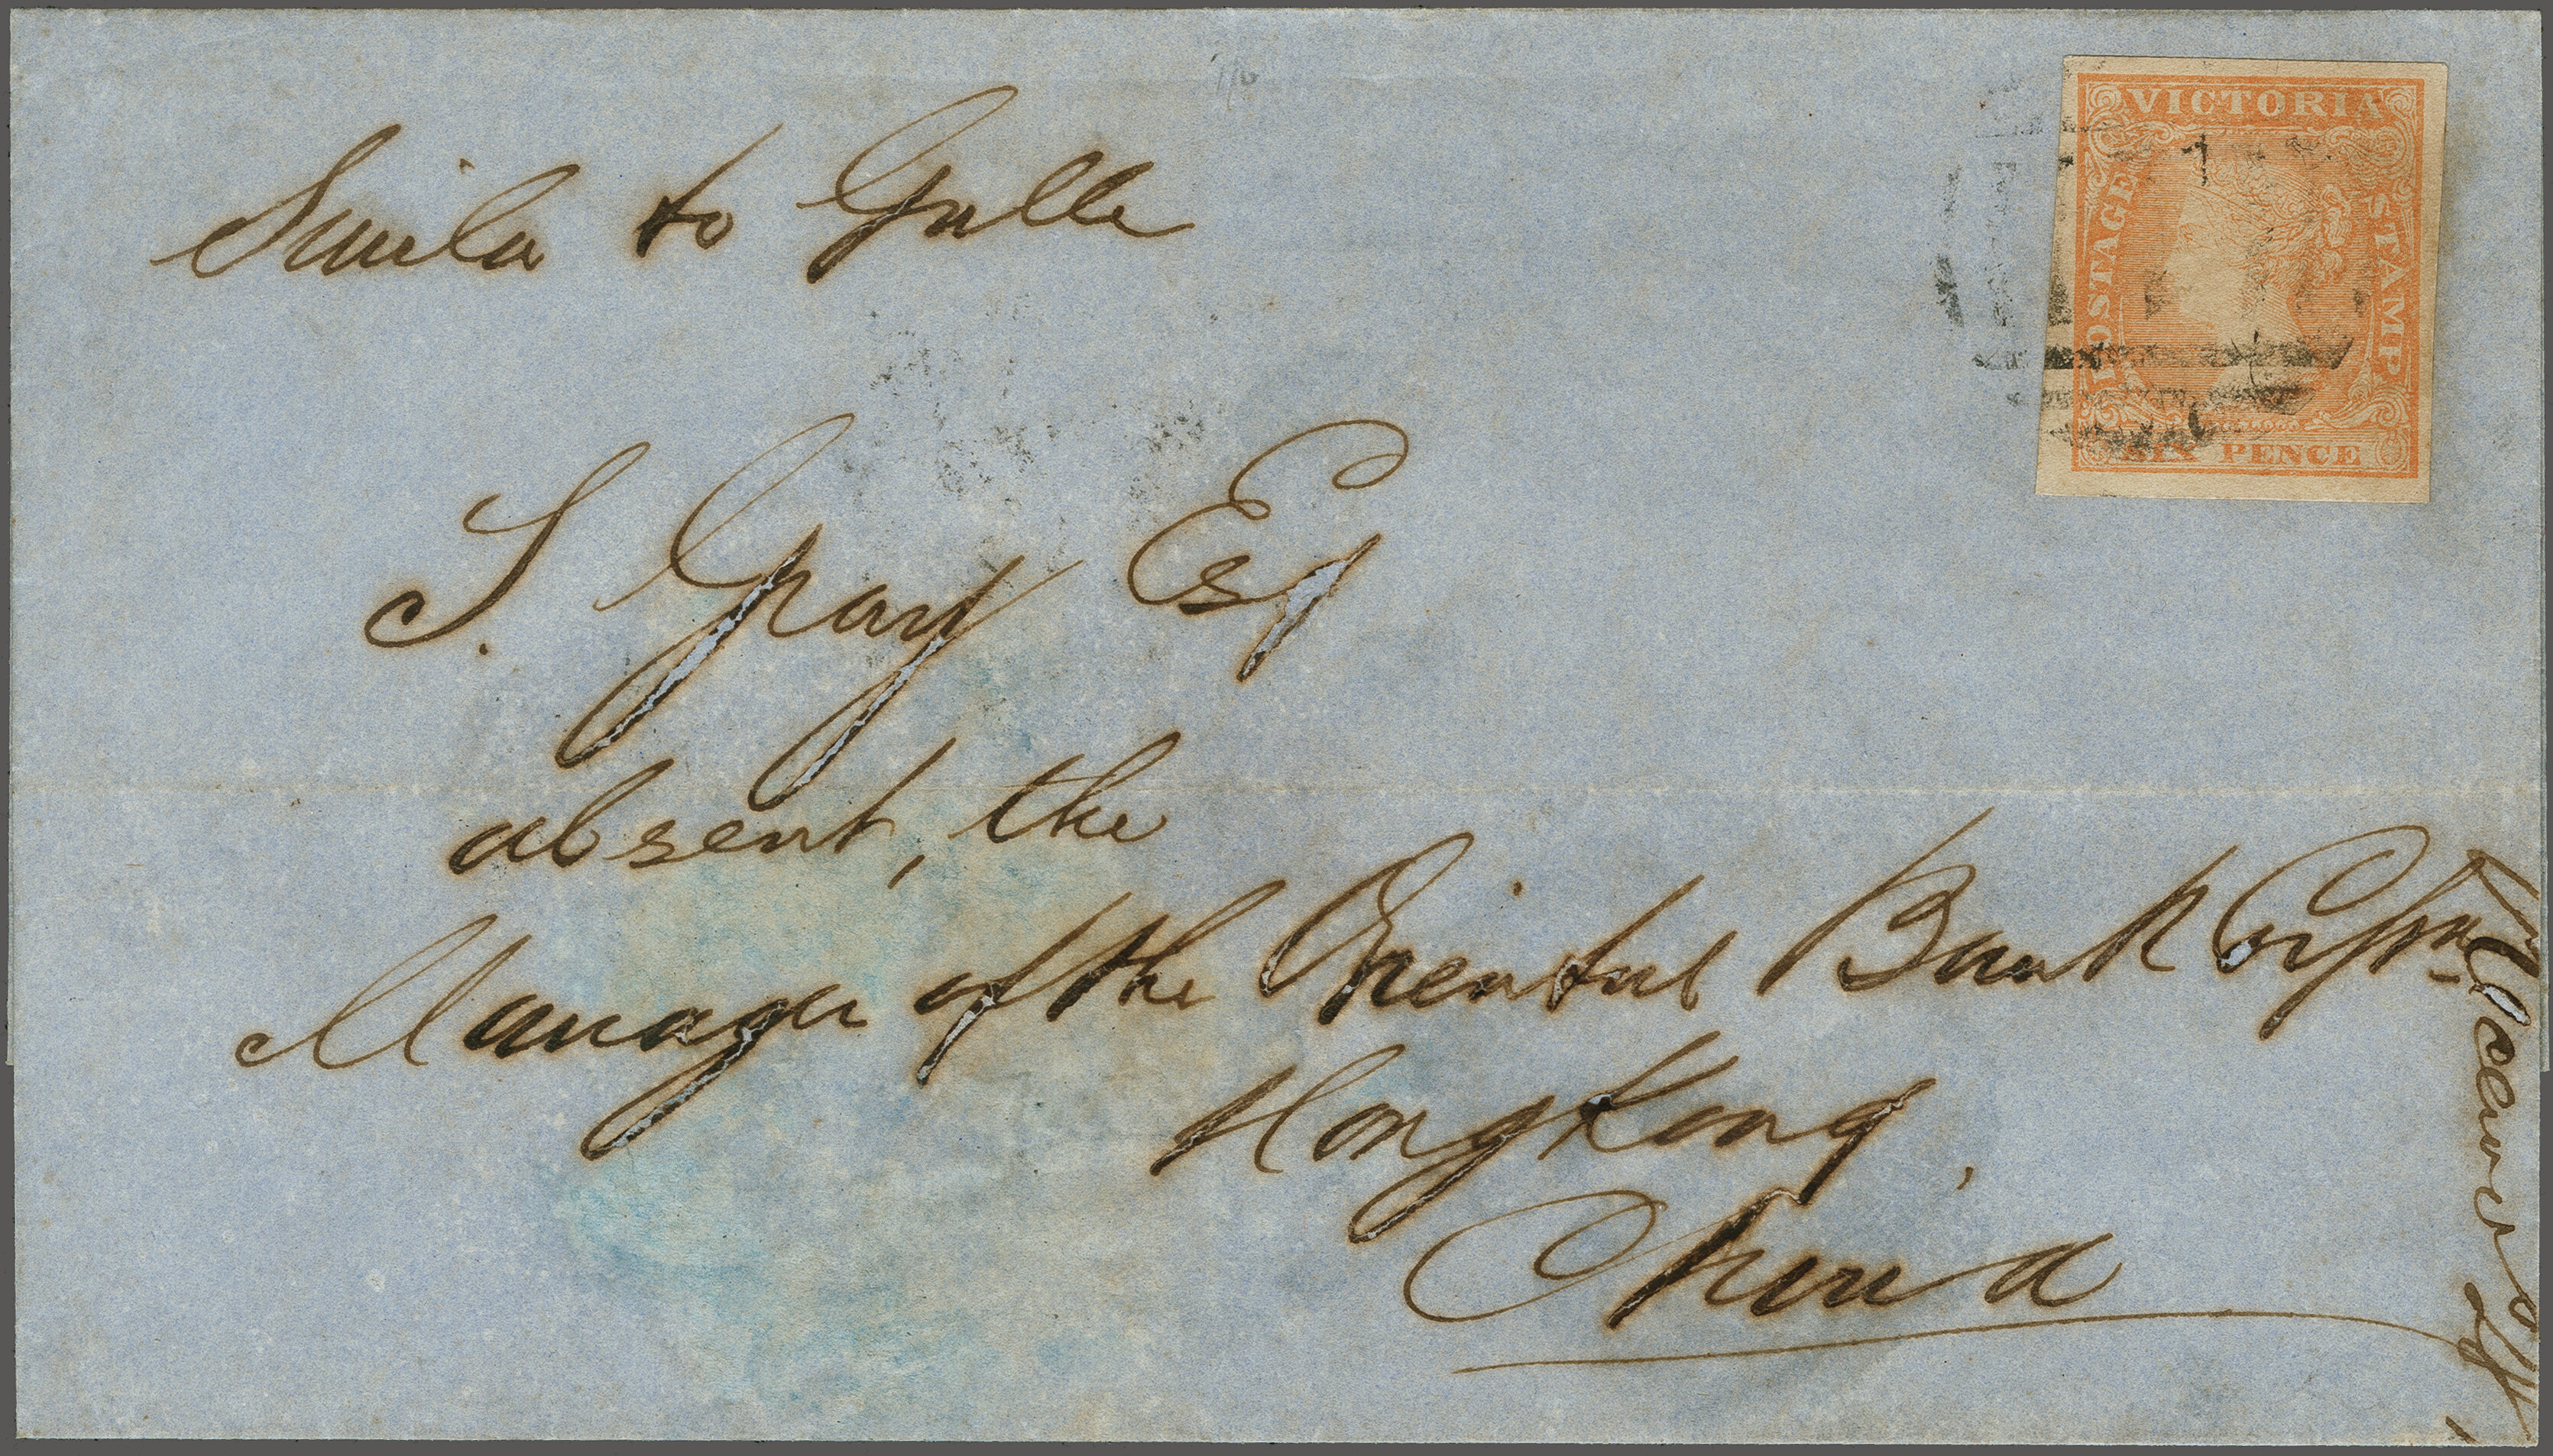 to Galle
VICTORIA
POSTAGE
STAMP
SIX PENCE
1
S. Gray Esq
absent, the
Manager of the Oriental Bank Corpn
Hong Kong,
China